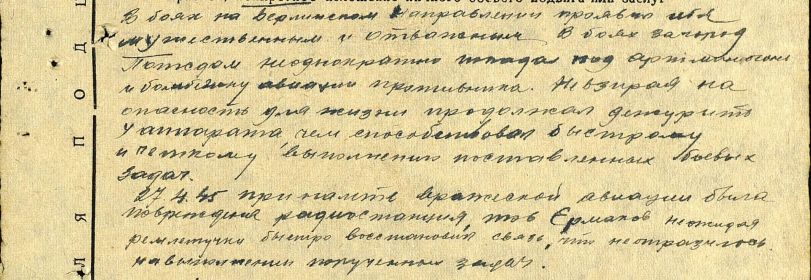 В боях на Берлинском направлении проявил себя
мужественным и отважным В боях за город
Потсдам неоднократно попадал под артминогонь
и бомбежку авиации противника. Невзирая на
опасность для жизни продолжал дежурить
у аппарата чем способствовал быстрому
и четкому выполнению поставленных боевых
задач.
27.4.45 при налете вражеской авиации была
повреждена радиостанция, тов Ермаков неожидая
ремлетучки быстро восстановил связь, что неотразилось
на выполнении порученных задач.
П О Д
Л Я